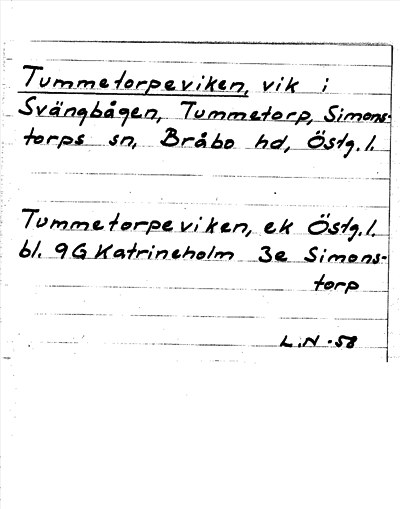 Tummetorpeviken, vik i
Svängbågen, Tummetorp, Simons-
torps sn, Bråbo hd, Östg.l.
Tummetorpeviken, ek Östg.l.
bl. 9G Katrineholm 3e Simons-
torp
L.N -58